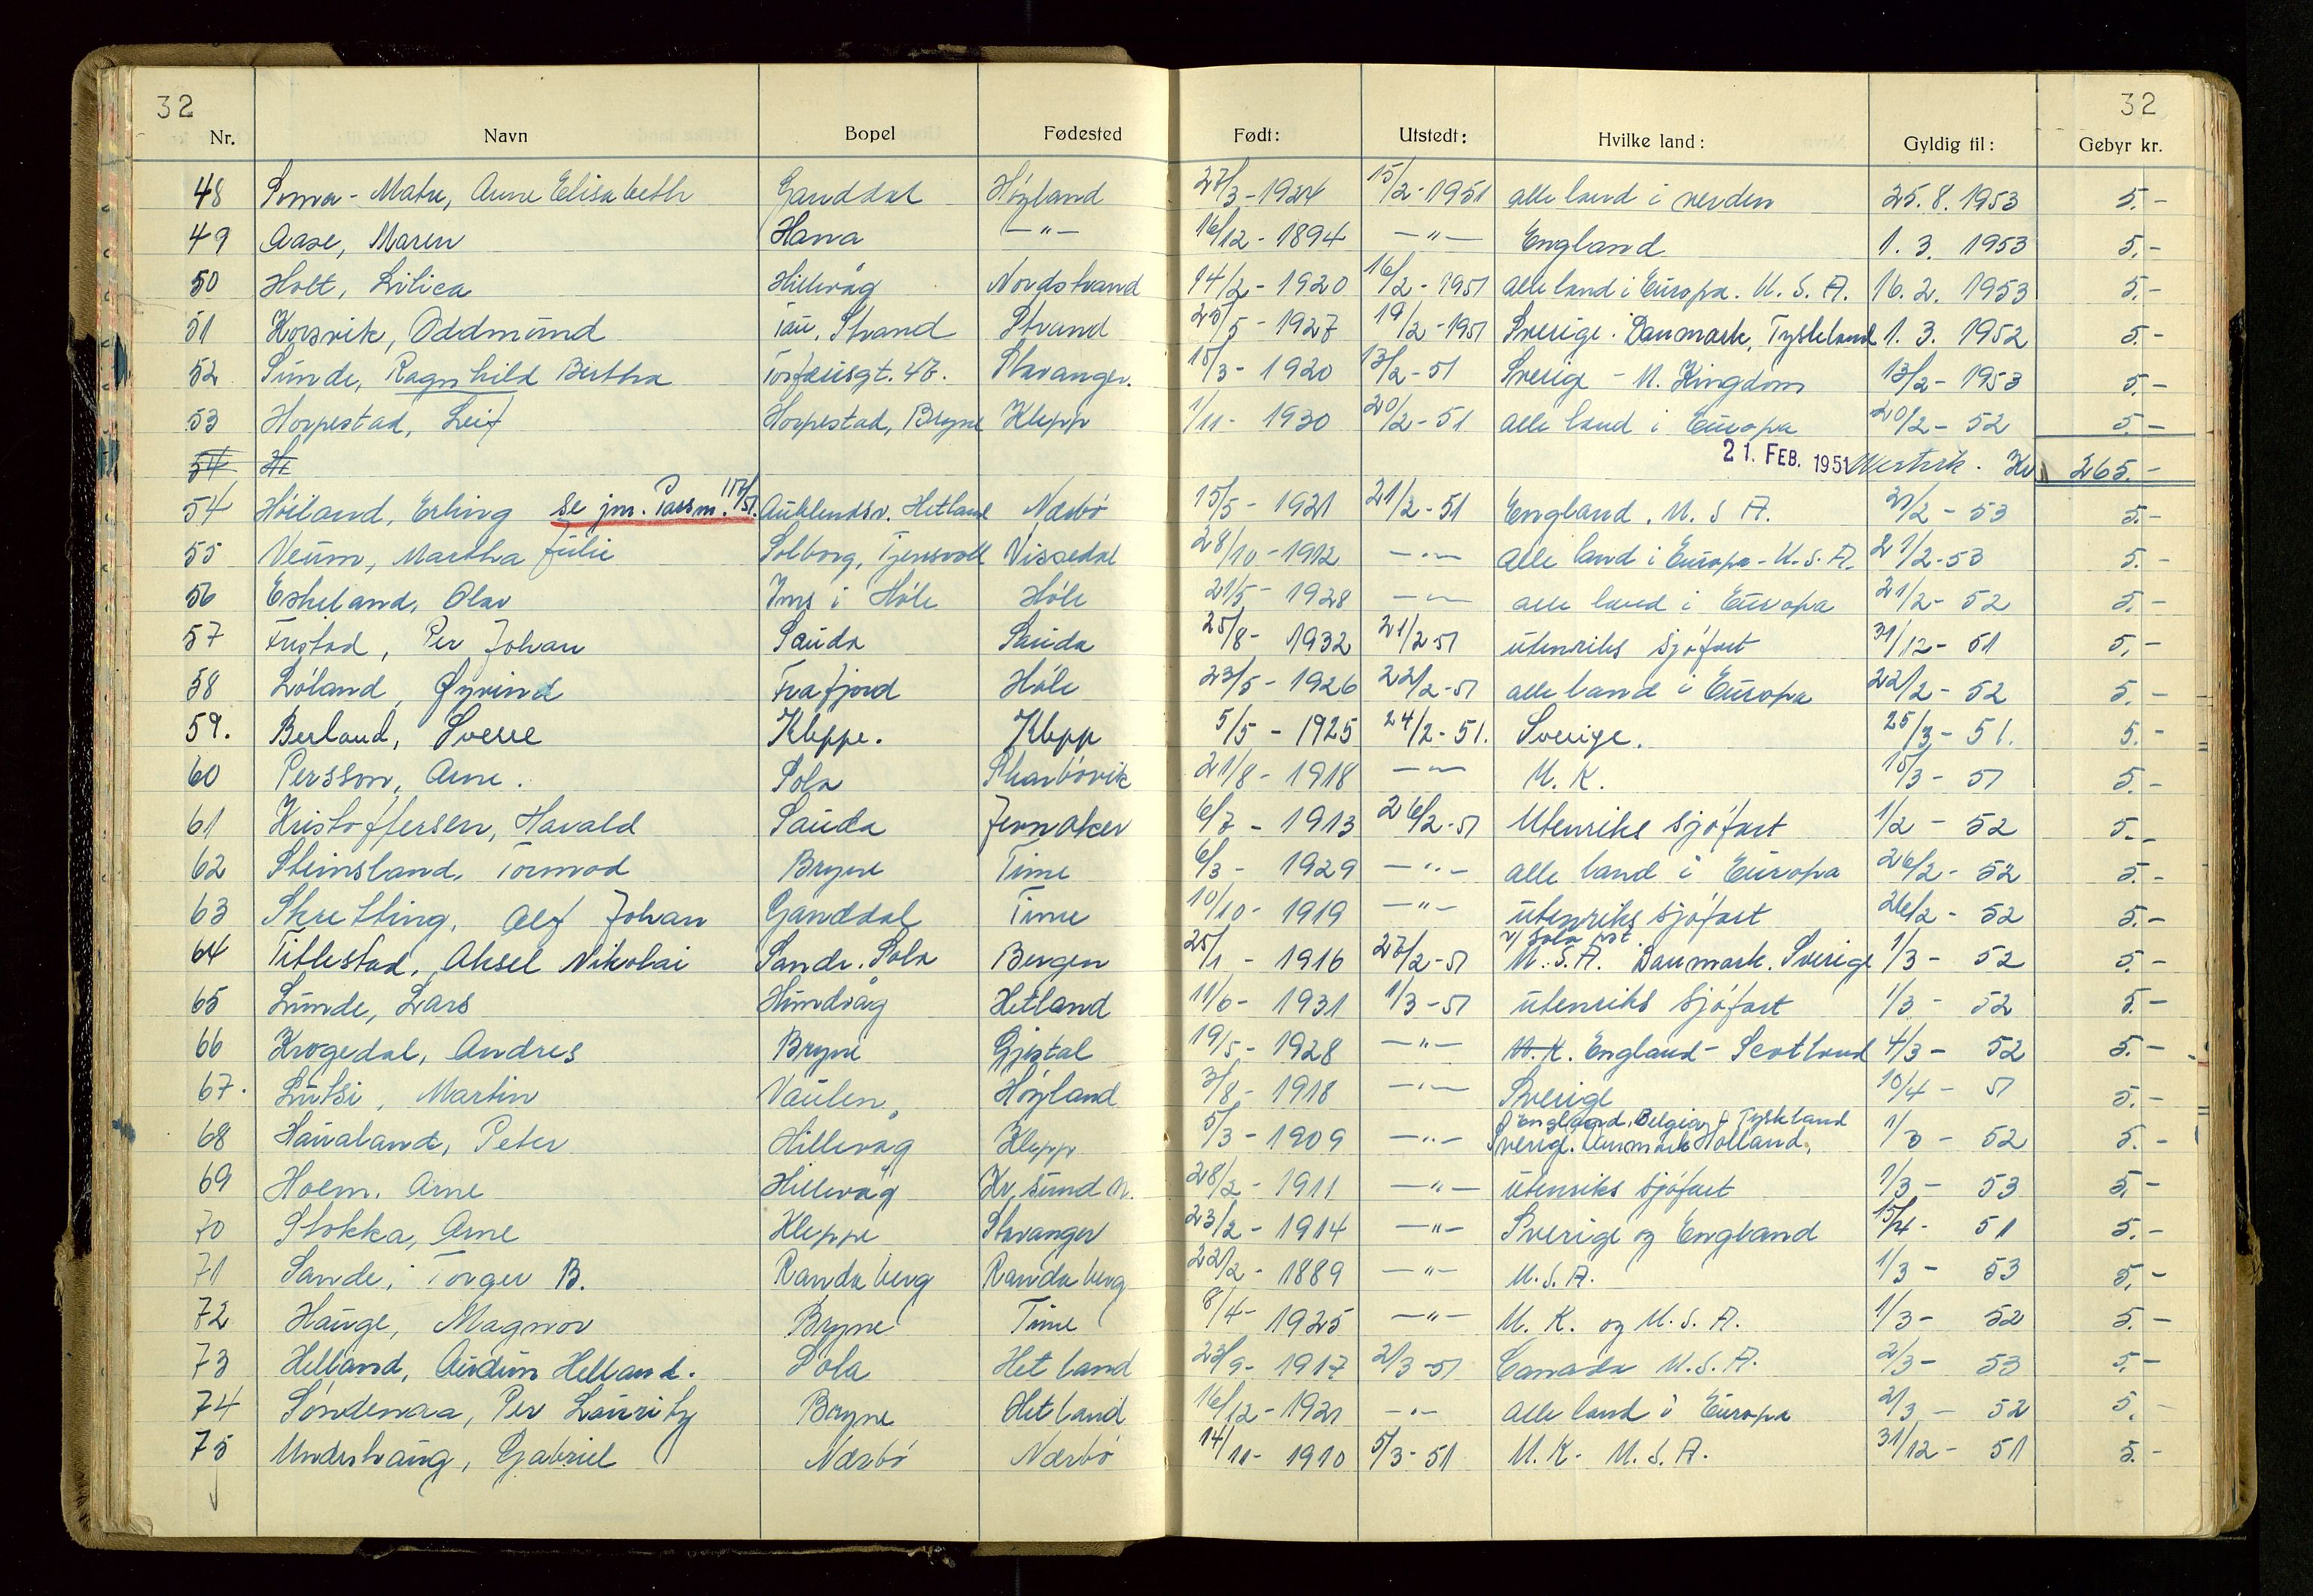 32 32
Nr. Navn Bopel Fødested Født: Utstedt: Hvilke land: Gyldig til: Gebyr kr.
48 Soma-Matre, Anne Elisabeth Ganddal Höyland 27/3-1924 15/2-1951 alle land i verden 25.8.1953 5.-
49 Aase, Maren Hana —"— 16/12-1894 —"— England 1.3.1953 5.-
50 Holt, Lilica Hillevåg Nordstrand 14/2-1920 16/2-1951 alle land i Europa. U.S.A. 16.2.1953 5.-
51 Korsvik, Oddmund Tau, Strand Strand 25/5-1927 19/2-1951 Sverige. Danmark, Tyskland 1.3.1952 5.-
52 Sunde, Ragnhild Bertha Torfæusgt. 48. Stavanger. 15/3-1920 13/2-51 Sverige - U. Kingdom 13/2-1953 5.-
53 Horpestad, Leif Horpestad, Bryne Klepp 1/11-1930 20/2-51 alle land i Europa 20/2-52 5.-
54 H 21. FEB. 1951 Kr. 265.-
54 Höiland, Erling se jnr. Passm. 117/51. Auklendsv. Hetland Nærbö 15/5-1921 21/2-51 England. U.S.A. 21/2-53 5.-
55 Veum, Martha Julie Solborg, Tjensvoll Vissedal 28/10-1912 —"— alle land i Europa - U.S.A. 21/2-53 5.-
56 Eskeland, Olav Ims i Höle Höle 21/5-1928 —"— alle land i Europa 21/2-52 5.-
57 Fristad, Per Johan Sauda Sauda 25/8-1932 21/2-51 utenriks sjöfart 31/12-51 5.-
58 Löland, Øyvind Frafjord Höle 23/5-1926 22/2-51 alle land i Europa 22/2-52 5.-
59. Berland, Sverre Kleppe. Klepp 5/5-1925 24/2-51. Sverige. 25/3-51. 5.-
60 Persson, Arne. Sola 21/8-1918 —"— U.K. 15/3-51 5.-
61 Kristoffersen, Harald Sauda Jevnaker 6/7-1913 26/2-51 Utenriks sjöfart 1/2-52 5.-
62 Steinsland, Tormod Bryne Time 6/3-1929 —"— alle land i Europa 26/2-52 5.-
63 Skretting, Alf Johan Ganddal Time 10/10-1919 —"— utenriks sjöfart 26/2-52 5.-
v/ Sola pst.
64 Titlestad, Aksel Nikolai Sande. Sola Bergen 25/1-1916 27/2-51 U.S.A. Danmark. Sverige 1/3-52 5.-
65 Lunde, Lars Hundvåg Hetland 11/6-1931 1/3-51 utenriks sjöfart 1/3-52 5.-
66 Krogedal, Andres Bryne Gjestal 19/5-1928 —"— U.K. England - Scotland 4/3-52 5.-
67. Lutsi, Martin Vaulen Höyland 3/8-1918 —"— Sverige 10/4-51 5.-
England, Belgia, Tyskland
68 Haualand, Peter Hillevåg Klepp 5/3-1909 —"— Sverige. Danmark Holland, 1/3-52 5.-
69 Holm, Arne Hillevåg Kr.sund N. 28/2-1911 —"— utenriks sjöfart 1/3-53 5.-
70 Stokka, Arne Kleppe Stavanger 23/2-1914 —"— Sverige og England 15/4-51 5.-
71 Sande, Torger B. Randaberg Randaberg 22/2-1889 —"— U.S.A. 1/3-53 5.-
72 Hauge, Magnor Bryne Time 8/4-1925 —"— U.K. og U.S.A. 1/3-52 5.-
73 Helland, Audun Helland. Sola Hetland 23/9-1917 2/3-51 Canada U.S.A. 2/3-53 5.-
74 Söndenaa, Per Lauritz Bryne Hetland 16/12-1921 —"— alle land i Europa 2/3-52 5.-
75 Undershaug, Gabriel Nærbö Nærbö 14/11-1910 5/3-51 U.K. U.S.A. 31/12-51 5.-